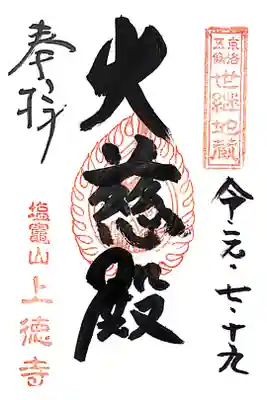 京洛
五條
世継地蔵
令・元・七・十九
大慈殿
奉拝
塩竈山
上徳寺